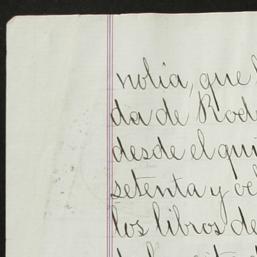 nolia, que
da de Rod
desde el qui
setenta y oc
los libros de